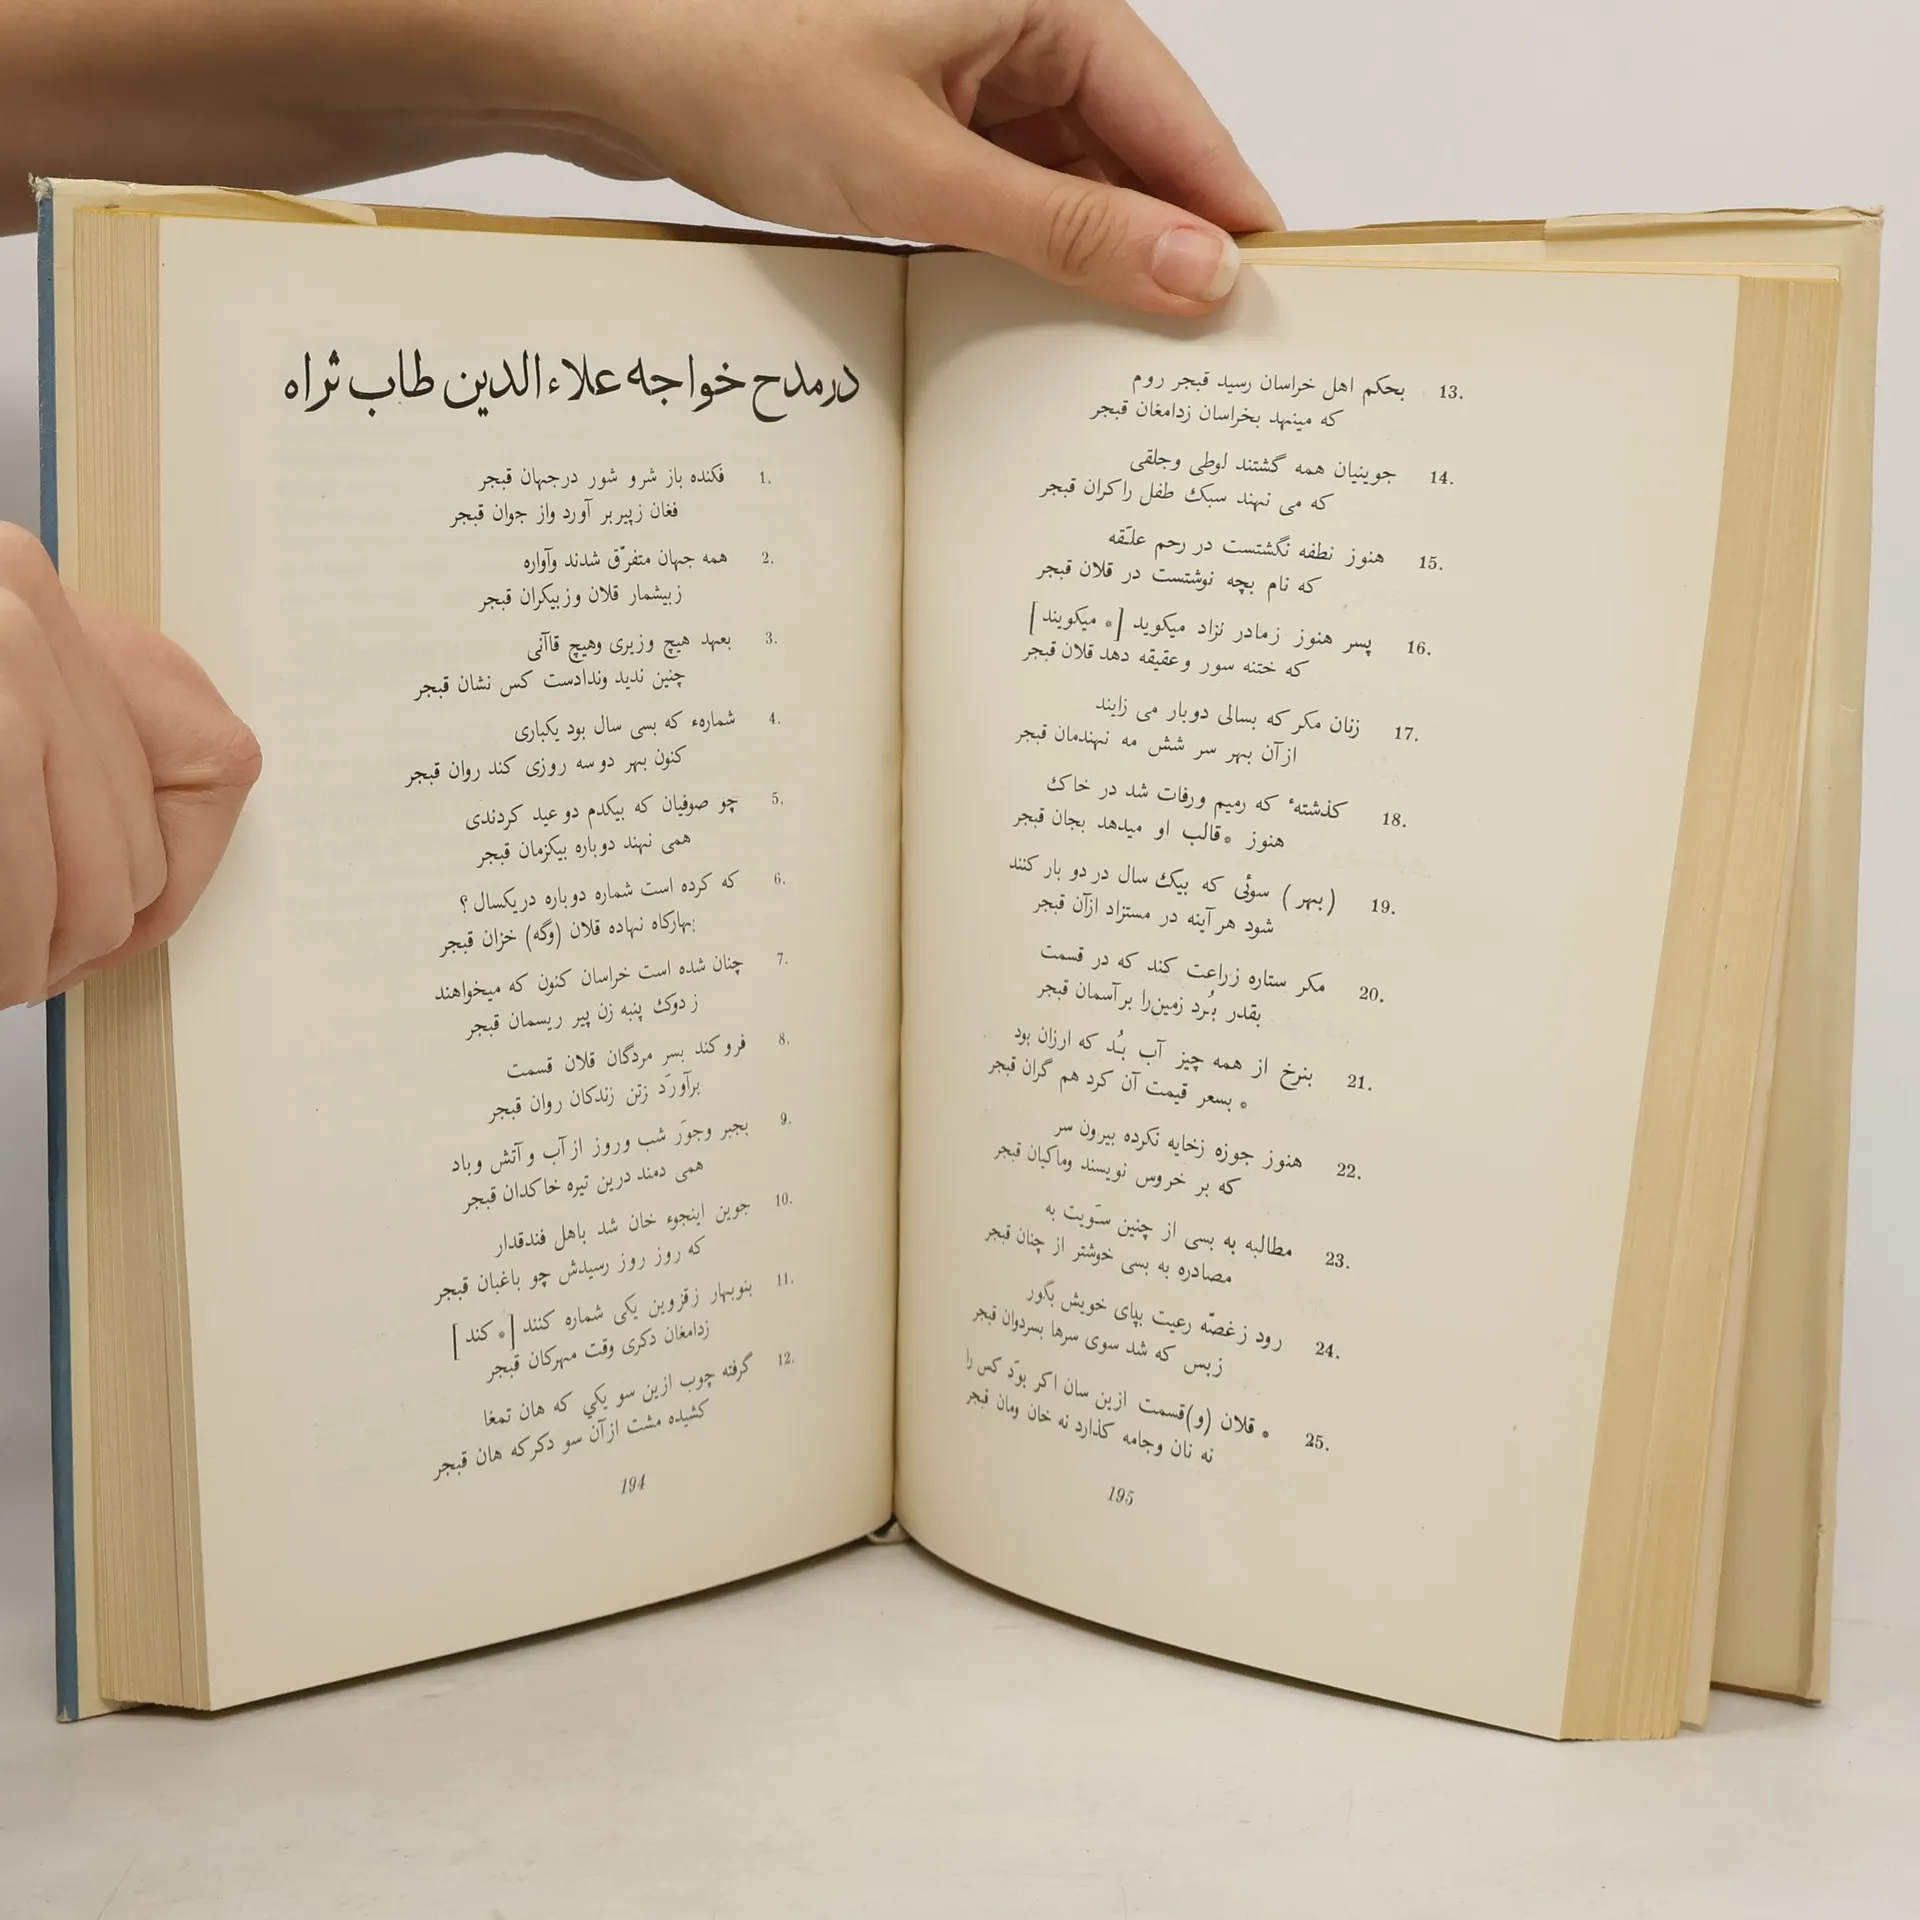 درمدح خواجه علاءالدین طاب ثراه
1. فکنده باز شرو شور درجهان قبجر
فغان زپیربر آورد واز جوان قبجر
2. همه جهان متفرّق شدند وآواره
زبیشمار قلان وزبیکران قبجر
3. بعهد هیچ وزیری وهیچ قاآنی
چنین ندید وندادست کس نشان قبجر
4. شمارهء که بسی سال بود یکباری
کنون بهر دوسه روزی کند روان قبجر
5. چو صوفیان که بیکدم دوعید کردندی
همی نهند دوباره بیکزمان قبجر
6. که کرده است شماره دوباره دریکسال ؟
بهارکاه نهاده قلان (وگه) خزان قبجر
7. چنان شده است خراسان کنون که میخواهند
زدوک پنبه زن پیر ریسمان قبجر
8. فروکند بسر مردگان قلان قسمت
برآورَد زتن زندکان روان قبجر
9. بجبر وجوَر شب وروز ازآب وآتش وباد
همی دمند درین تیره خاکدان قبجر
10. جوین اینجوء خان شد باهل فندقدار
که روز روز رسیدش چو باغبان قبجر
11. بنوبهار زقزوین یکی شماره کنند [* کند]
زدامغان دکری وقت مهرکان قبجر
12. گرفته چوب ازین سو یکي که هان تمغا
کشیده مشت ازآن سو دکرکه هان قبجر
194
13. بحکم اهل خراسان رسید قبجر روم
که مینهد بخراسان زدامغان قبجر
14. جوینیان همه گشتند لوطی وجلقی
که می نهند سبک طفل راکران قبجر
15. هنوز نطفه نگشتست در رحم علَقه
که نام بچه نوشتست در قلان قبجر
16. پسر هنوز زمادر نزاد میکوید [* میکویند]
که ختنه سور وعقیقه دهد قلان قبجر
17. زنان مکر که بسالی دوبار می زایند
ازآن بهر سر شش مه نهندمان قبجر
18. کذشتهٔ که رمیم ورفات شد در خاک
هنوز *قالب او میدهد بجان قبجر
19. (بهر) سوئی که بیک سال در دو بار کنند
شود هرآینه در مستزاد ازآن قبجر
20. مکر ستاره زراعت کند که در قسمت
بقدر بُرد زمین‌را برآسمان قبجر
21. بنرخ از همه چیز آب بُد که ارزان بود
* بسعر قیمت آن کرد هم گران قبجر
22. هنوز جوزه زخایه نکرده بیرون سر
که بر خروس نویسند وماکیان قبجر
23. مطالبه به بسی از چنین سَویت به
مصادره به بسی خوشتر از چنان قبجر
24. رود زغصّه رعیت بپای خویش بگور
زبس که شد سوی سرها بسردوان قبجر
25. * قلان (و)قسمت ازین سان اکر بوَد کس را
نه نان وجامه کذارد نه خان ومان قبجر
195